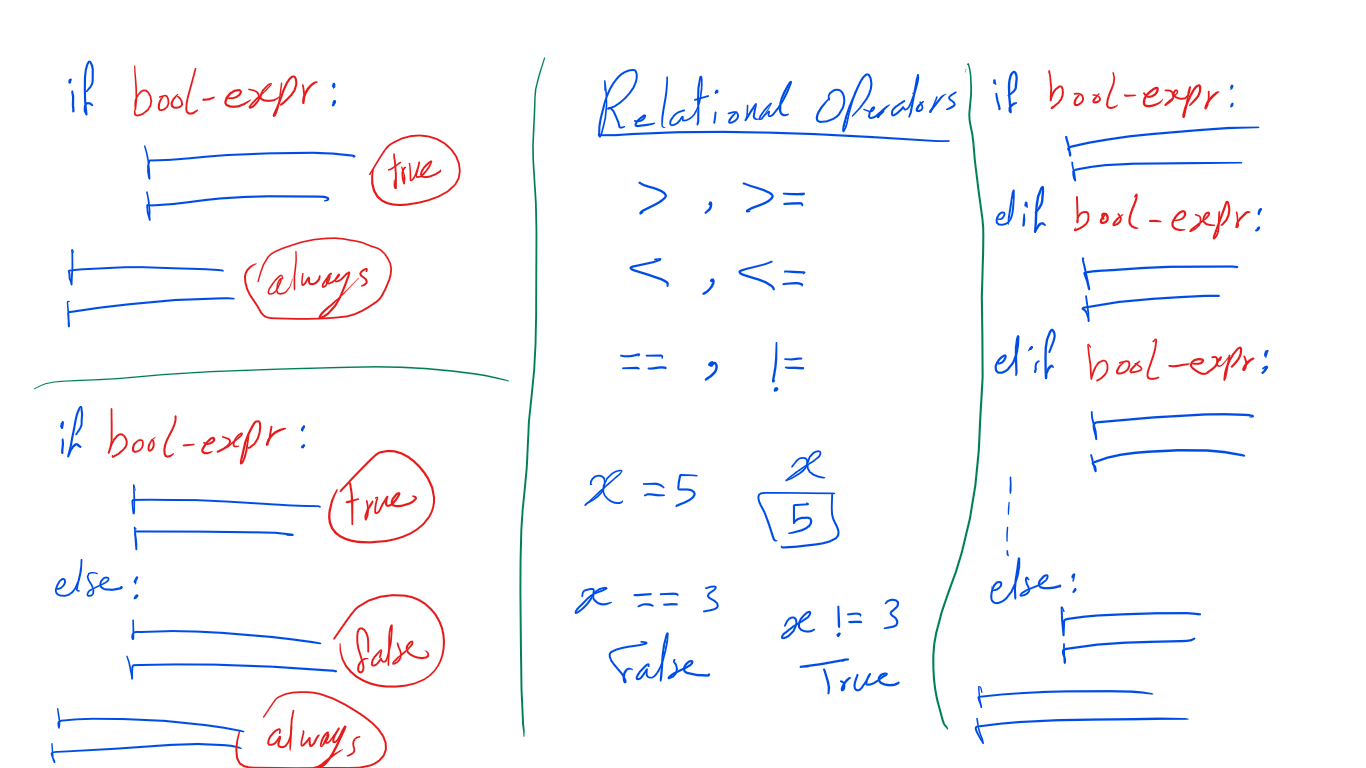 if bool-expr:
true
always
if bool-expr:
true
else:
false
always
Relational Operators
> , >=
< , <=
== , !=
x = 5
x
5
x == 3
False
x != 3
True
if bool-expr:
elif bool-expr:
elif bool-expr:
else: